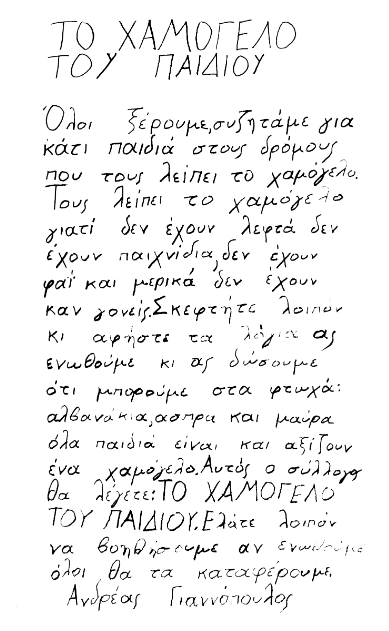 ΤΟ ΧΑΜΟΓΕΛΟ
ΤΟΥ ΠΑΙΔΙΟΥ
Όλοι ξέρουμε,συζητάμε για
κάτι παιδιά στους δρόμους
που τους λείπει το χαμόγελο.
Τους λείπει το χαμόγελο
γιατί δεν έχουν λεφτά δεν
έχουν παιχνίδια,δεν έχουν
φαΐ και μερικά δεν έχουν
καν γονείς.Σκεφτήτε λοιπόν
κι αφήστε τα λόγια ας
ενωθούμε κι ας δώσουμε
ότι μπορούμε στα φτωχά:
αλβανάκια,ασπρα και μαύρα
όλα παιδιά είναι και αξίζουν
ένα χαμόγελο.Αυτός ο σύλλογος
θα λέγετε:ΤΟ ΧΑΜΟΓΕΛΟ
ΤΟΥ ΠΑΙΔΙΟΥ.Ελάτε λοιπόν
να βοηθήσουμε αν ενωθούμε
όλοι θα τα καταφέρουμε.
Ανδρέας Γιαννόπουλος